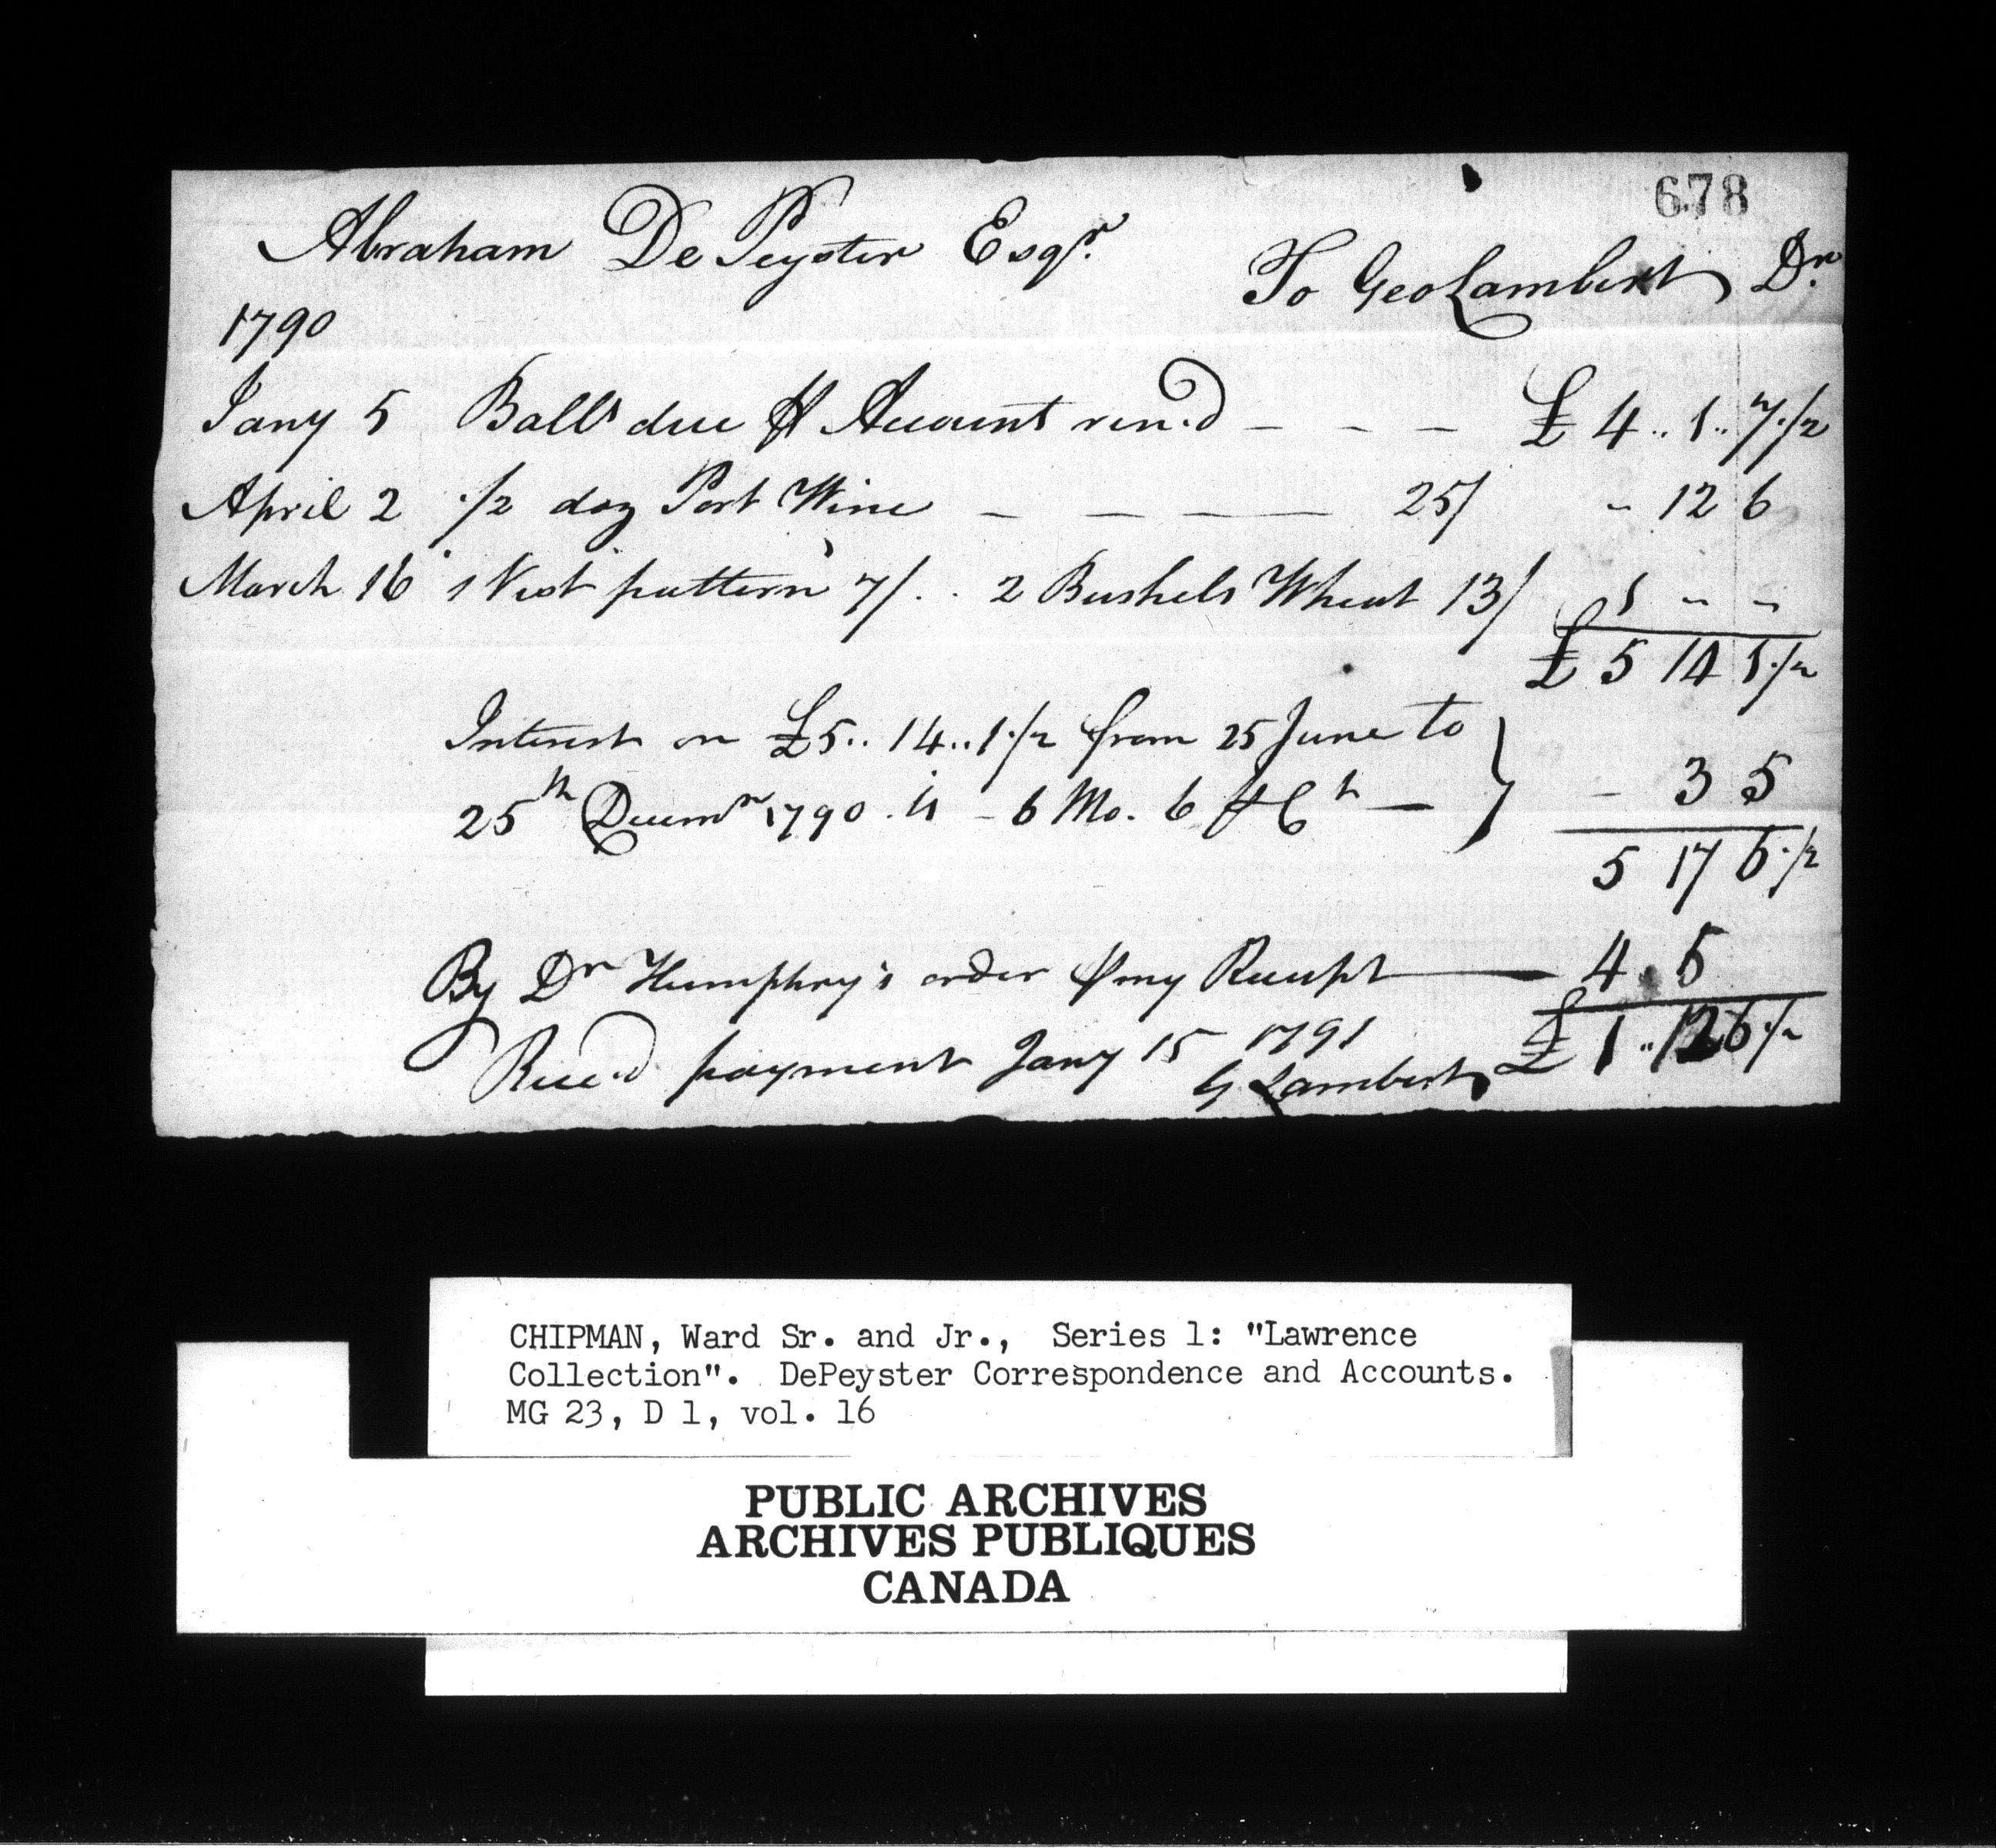 678
Abraham De Peyster Esqr.
To Geo Lambert Dr.
1790
Jany 5 Balle due ⅌ Account ren.d £ 4 .. 1 .. 7 1/2
April 2 1/2 doz Port Wine 25/ " 12 6
March 16 1 Vest pattern 7/. . 2 Bushels Wheat 13/ 1 " "
£ 5 14 1 1/2
Interest on £5 .. 14 .. 1 1/2 from 25 June to
25th Decemr 1790 is - 6 Mo. 6 ⅌ Ct - 3 5
5 17 6 1/2
By Dr Humphry's order ⅌ my Receipt 4 . 5
£ 1 .. 12 6 1/2
Rece.d payment Jany 15 1791
G Lambert
CHIPMAN, Ward Sr. and Jr., Series 1: "Lawrence
Collection". DePeyster Correspondence and Accounts.
MG 23, D 1, vol. 16
PUBLIC ARCHIVES
ARCHIVES PUBLIQUES
CANADA